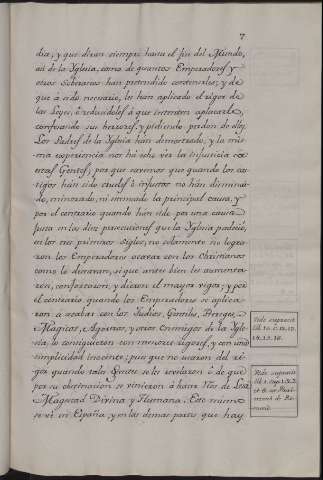 7
dia, y que diran siempre hasta el fin del Mundo,
asi de la Yglesia, como de quantos Emperadores y
otros Soberanos han pretendido contenerles, y de
que à sido necesario, les han aplicado el rigor de
las Leyes, ò reduciendoles à que intenten aplacarle,
confesando sus herrores, y pidiendo perdon de ellos.
Los Padres de la Yglesia han demostrado, y la mis-
ma experiencia nos ha hecho ver la Injusticia de
estas Gentes; por que savemos que quando los cas-
tigos han sido crueles è injustos no han disminui-
do, minorado, ni enmendado la principal causa, y
por el contrario quando han sido por una causa
Justa en las diez persecuciones que la Yglesia padeciò
en los tres primeros siglos, no solamente no logra-
ron los Emperadores acavar con los Christianos
como lo deseavan, si que antes bien les aumenta-
ron, confortaron, y dieron el mayor vigor; y por
el contrario quando los Emperadores se aplica-
ron à acabar con los Judios, Gentiles, Hereges,
Magicos, Agoreros, y otros Enemigos de la Ygle-
sia, lo consiguieron con menores rigores, y con una
simplicidad inocente; pues que no usaron del ri-
gor quando tales Gentes se les revelaron ò de que
por su obstinacion se vinieron à hacer Reos de Lesa
Magestad Divina y Humana. Esto mismo
se vè en España, y en las demas partes que hay
Vide supracit
lib. 10. c. 12, 13.
14. 15. 16.
Vide supracit